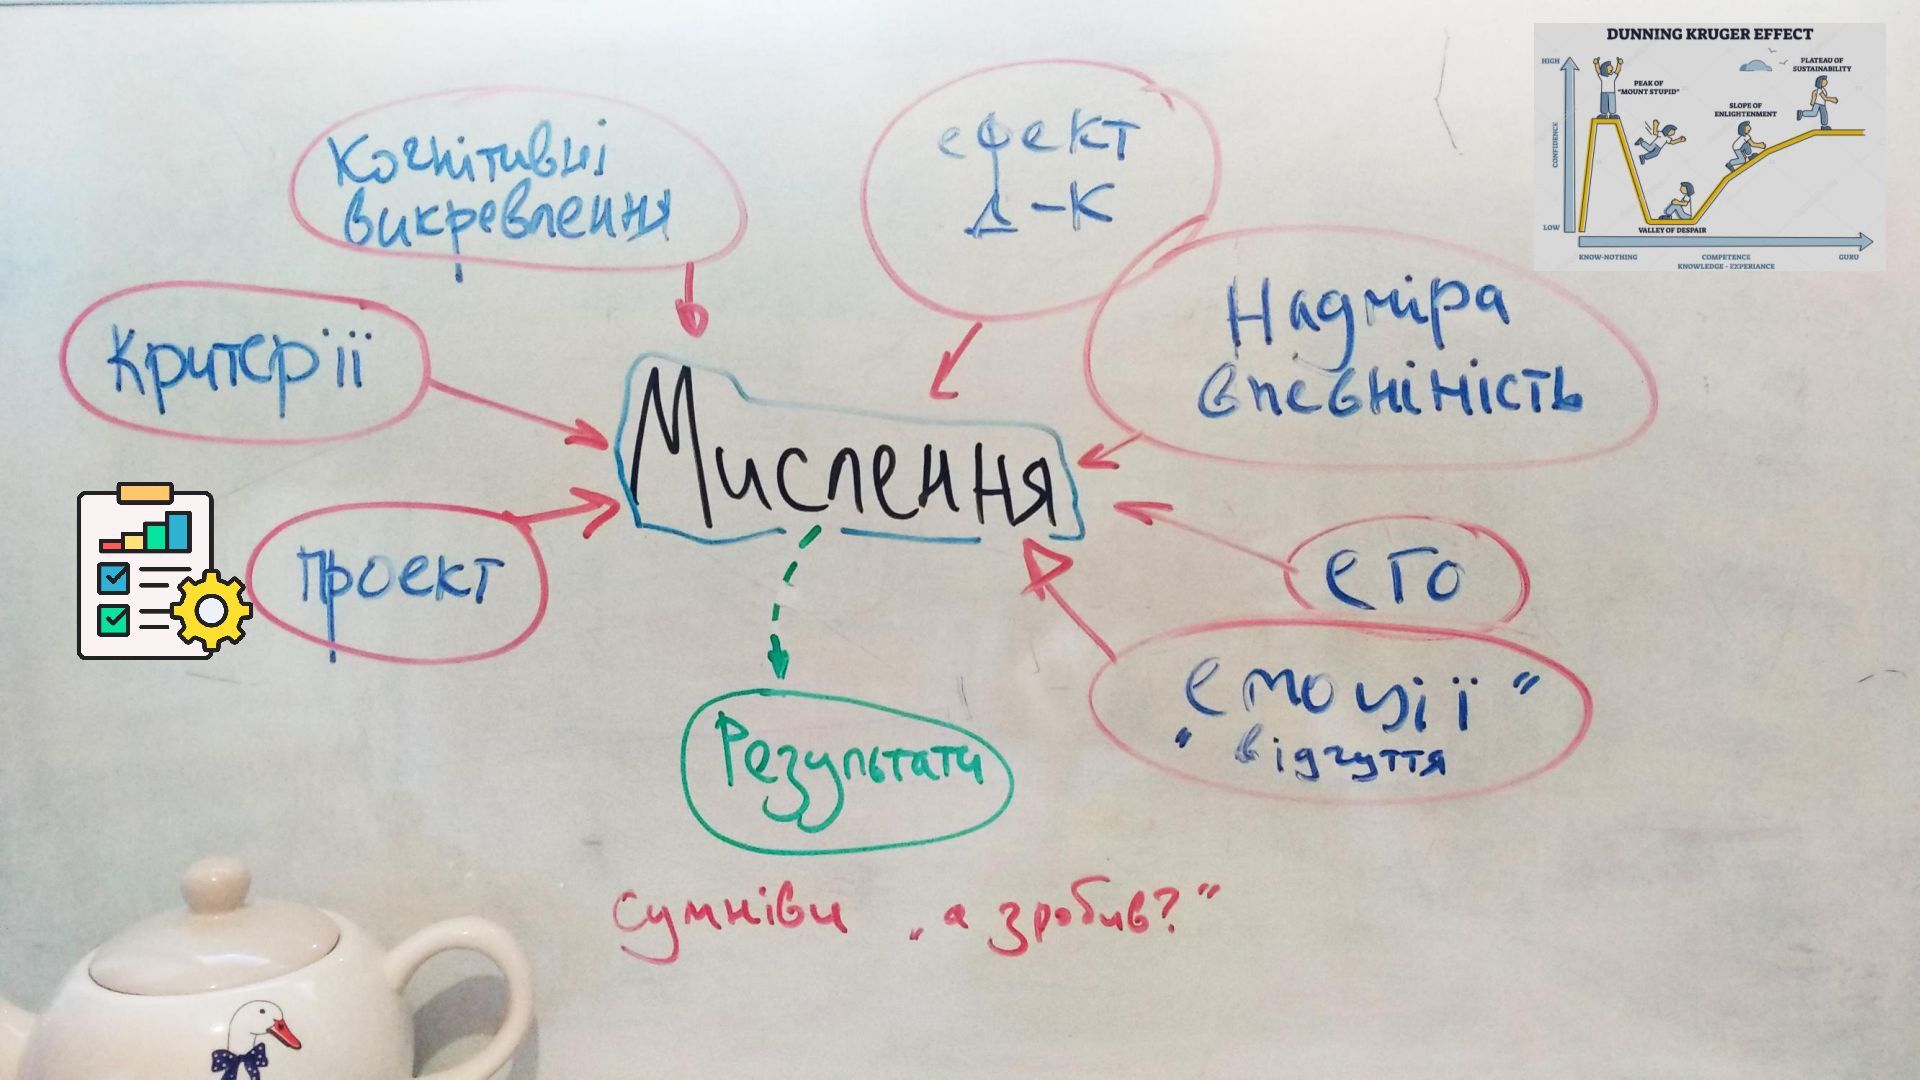 DUNNING KRUGER EFFECT
HIGH
CONFIDENCE
LOW
PEAK OF
"MOUNT STUPID"
PLATEAU OF
SUSTAINABILITY
SLOPE OF
ENLIGHTENMENT
VALLEY OF DESPAIR
KNOW-NOTHING
COMPETENCE
KNOWLEDGE - EXPERIANCE
GURU
Когнітивні
викревлення
ефект
Д-К
Надміра
впевніність
Критерії
Мислення
проект
его
емоції"
"відчуття
Результати
Сумніви „а зробив?"